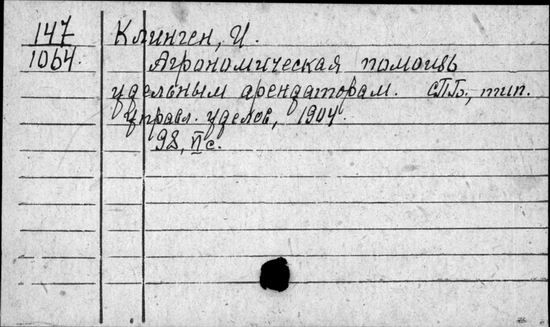 147
1064.
Клинген, И.
Агрономическая помощь
удельным арендаторам. СПБ., тип.
Управл. уделов, 1904.
98, II с.